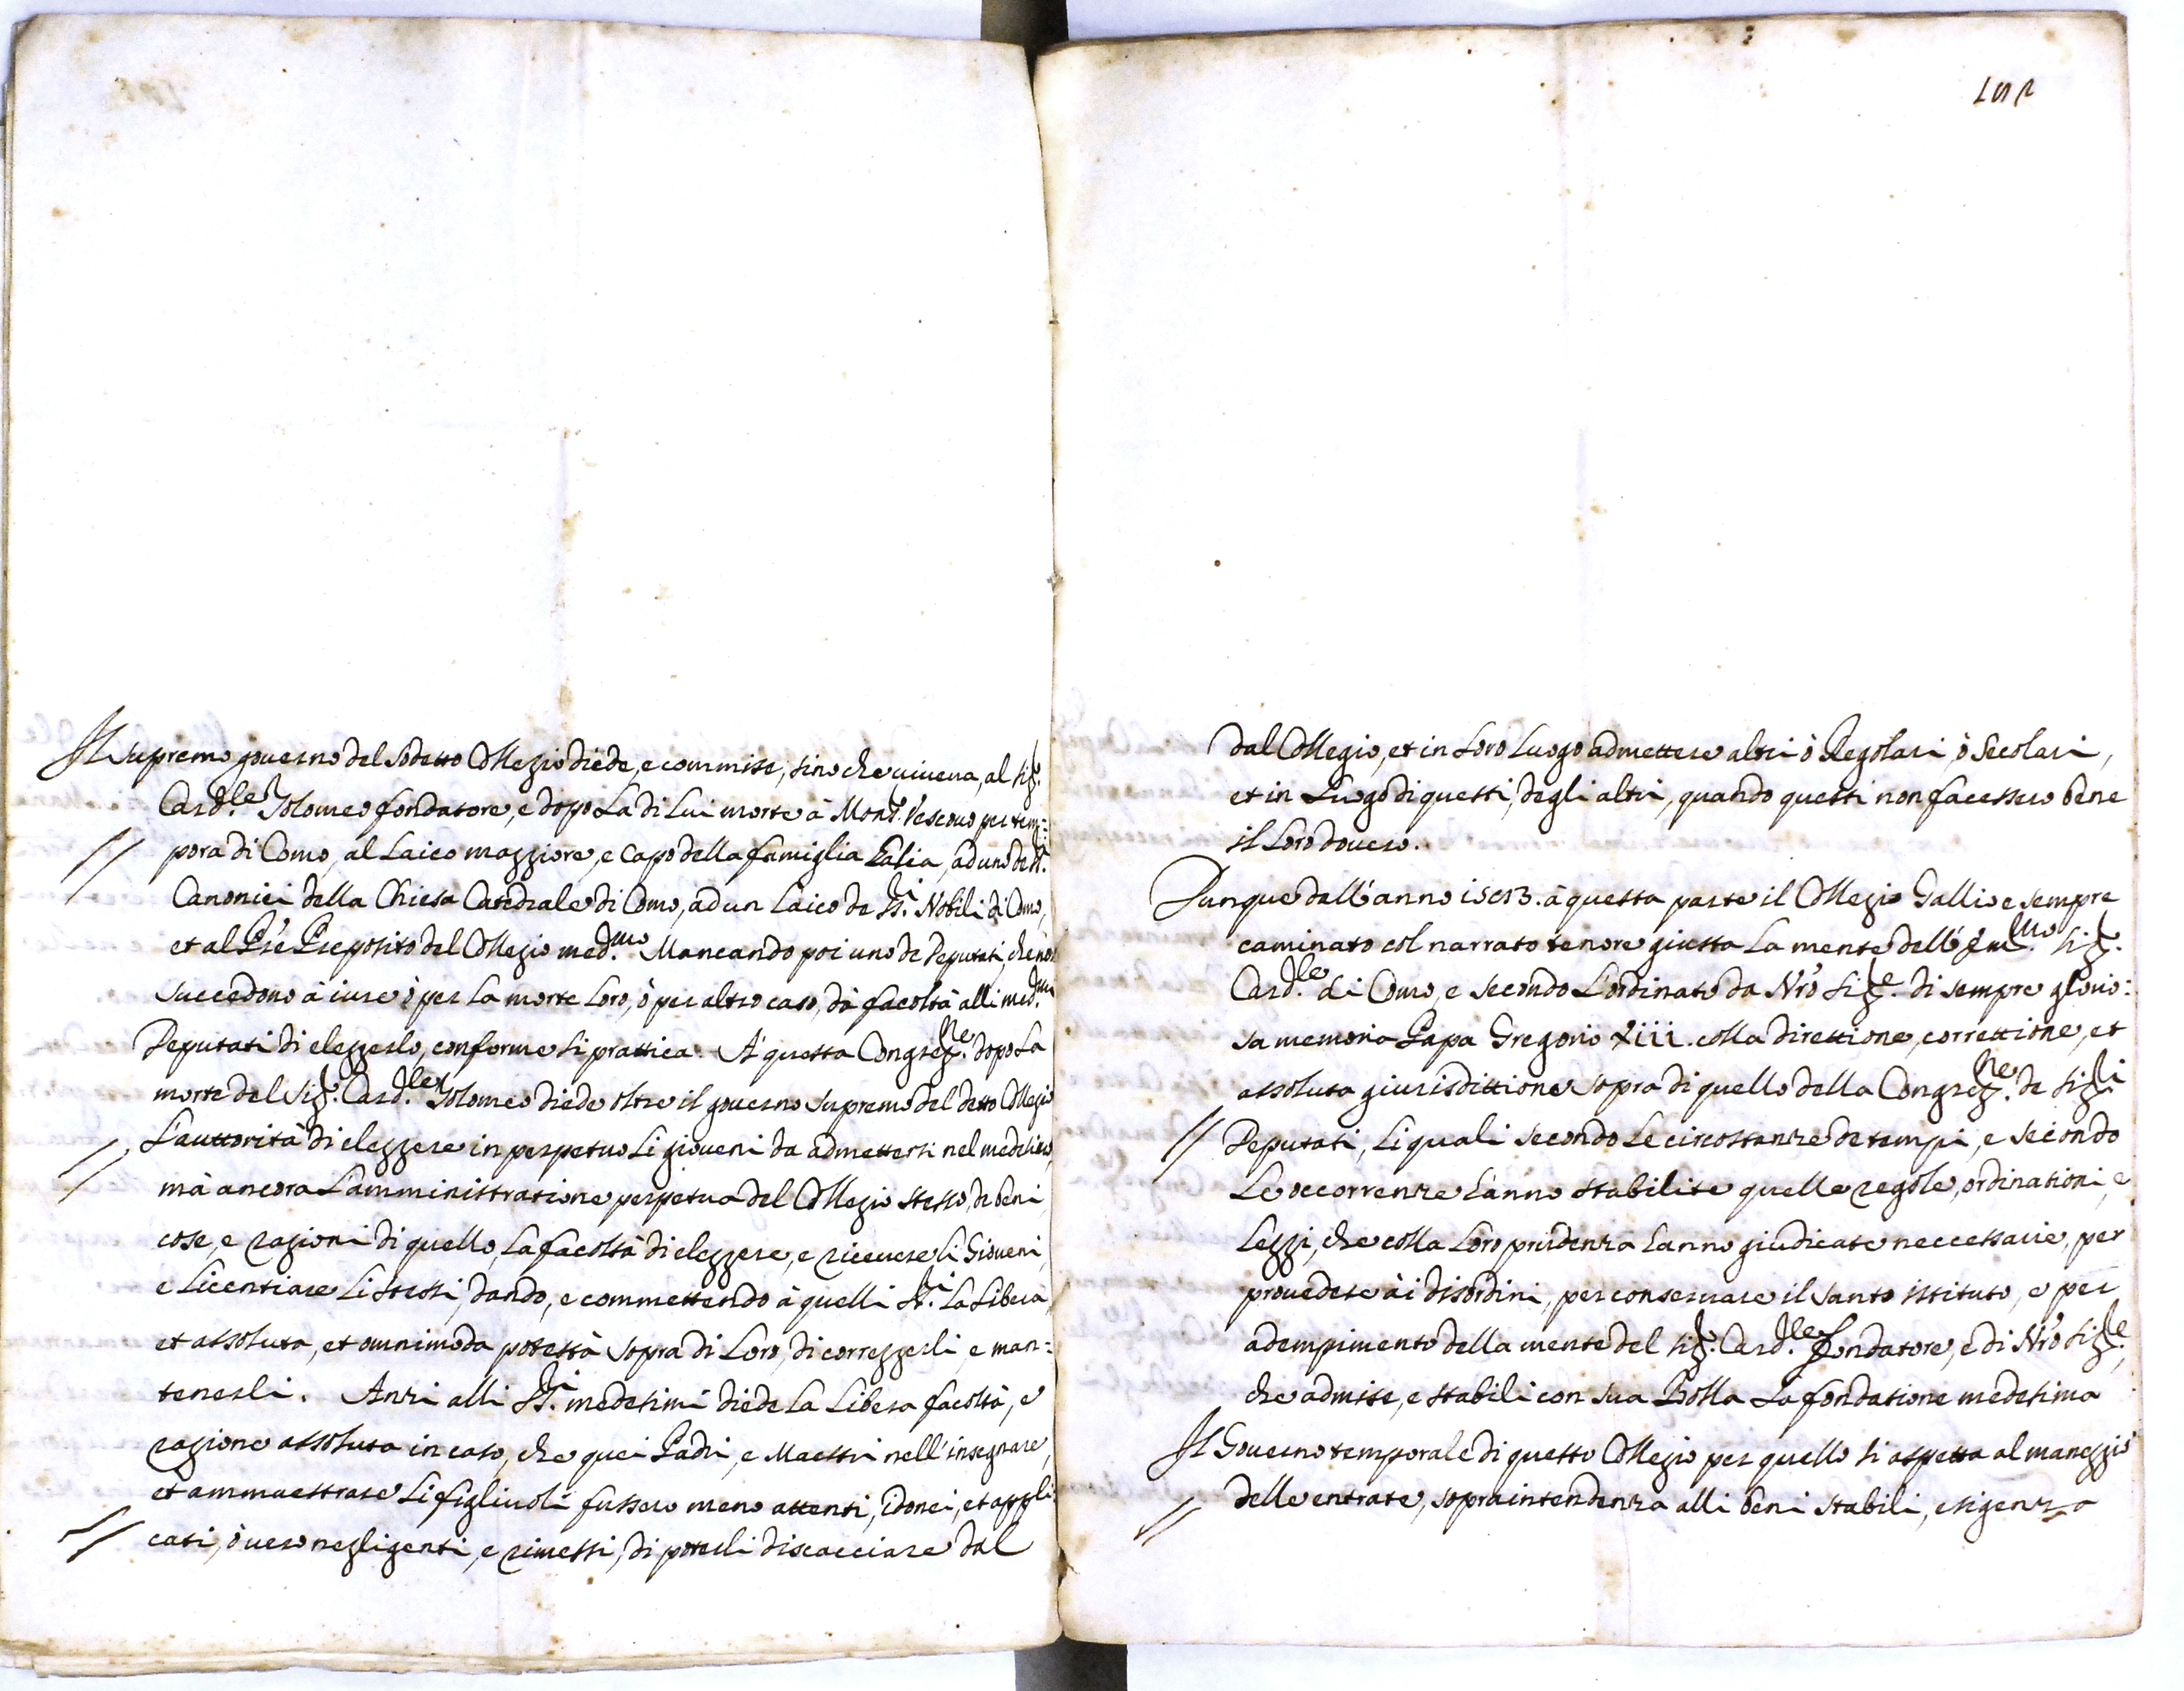 Il supremo gouerno del sodetto Collegio diede, e commise, sino che uiueua, al Sig.r
Card.le Tolomeo fondatore, e dopò La di Lui morte à Mons.r Vescouo per tem=
pora di Como, al Laico maggiore, e Capo della famiglia Galia, ad uno de SS.ri
Canonici della Chiesa Catedrale di Como, ad un Laico de SS.ri Nobili di Como,
et al P̃re Preposito del Collegio med.mo Mancando poi uno de Deputati, che non
succedono à iure ò per La morte Loro, ò per altro caso, dà facoltà alli med.mi
Deputati di eleggerlo, conforme si prattica. A' questa Congreg.ne dopo La
morte del Sig.r Card.le Tolomeo diede oltre il gouerno supremo del detto Collegio
L'auttorità di eleggere in perpetuo Li gioueni da admettersi nel medesimo,
mà ancora L'amministratione perpetua del Collegio stesso, de beni
cose, e ragioni di quello, La facoltà di eleggere, e riceuere li Gioueni,
e Licentiare Li stessi, dando, e commettendo à quelli SS.ri La Libera,
et assoluta, et omnimoda potestà sopra di Loro, di correggerli, e man=
tenerli. Anzi alli SS.ri medesimi diede La Libera facoltà, e
ragione assoluta in caso, che quei Padri, e Maestri nell'insegnare,
et ammaestrare Li figliuoli fussero meno attenti, idonei, et appli
cati, ò uero negligenti, e rimessi, di poterli discacciare dal
dal Collegio, et in Loro Luogo admettere altri ò Regolari, ò Secolari,
et in Luogo di questi, degli altri, quando questi non facessero bene
il Loro douero.
Dunque dall'anno 1583. à questa parte il Collegio Gallio e sempre
caminato col narrato tenore giusta La mente dell'Em.mo Sig.r
Card.le di Como, e secondo L'ordinato da Nr̃o Sig.re di sempre glorio=
sa memoria Papa Gregorio XIII. colla direttione, correttione, et
assoluta giurisdittione sopra di quello della Congreg.ne de Sig.ri
Deputati, Li quali secondo Le circostanze de tempi, e secondo
Le occorrenze hanno stabilite quelle regole, ordinationi, e
Leggi, che colla Loro prudenza hanno giudicate neccessarie, per
prouedere ài disordini, per conseruare il santo istituto, e per
adempimento della mente del Sig.r Card.le fondatore, e di Nr̃o Sig.re,
che admise, e stabili con sua Bolla La fondatione medesima
Il Gouerno temporale di questo Collegio per quello si aspetta al maneggio
delle entrate, sopraintendenza alli beni stabili, esigenza